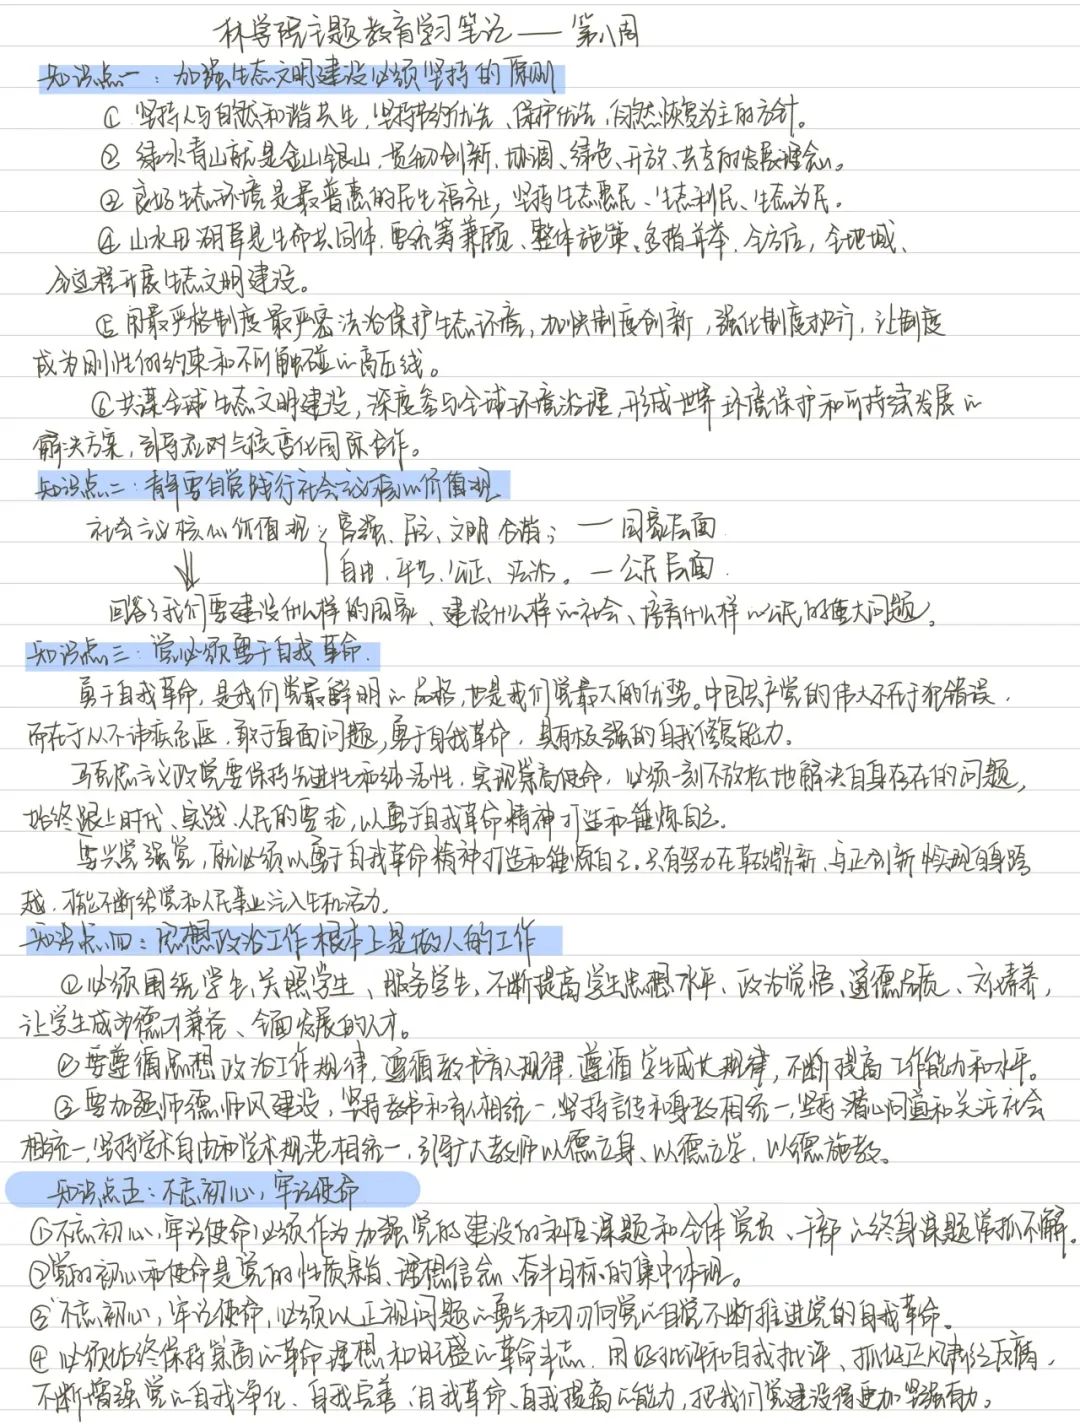 林学院主题教育学习笔记——第八周
知识点一：加强生态文明建设必须坚持的原则
① 坚持人与自然和谐共生，坚持节约优先、保护优先、自然恢复为主的方针。
② 绿水青山就是金山银山，贯彻创新、协调、绿色、开放、共享的发展理念。
③ 良好生态环境是最普惠的民生福祉，坚持生态惠民、生态利民、生态为民。
④ 山水田湖草是生命共同体，要统筹兼顾、整体施策、多措并举，全方位，全地域、
全过程开展生态文明建设。
⑤ 用最严格制度最严密法治保护生态环境，加快制度创新，强化制度执行，让制度
成为刚性的约束和不可触碰的高压线。
⑥共谋全球生态文明建设，深度参与全球环境治理，形成世界环境保护和可持续发展的
解决方案，引导应对气候变化国际合作。
知识点二：青年要自觉践行社会主义核心价值观
社会主义核心价值观：富强、民主、文明、和谐； — 国家层面
自由、平等、公正、法治。 — 公民层面.
回答了我们要建设什么样的国家、建设什么样的社会、培育什么样的公民的重大问题。
知识点三：党必须勇于自我革命.
勇于自我革命，是我们党最鲜明的品格，也是我们党最大的优势。中国共产党的伟大不在于不犯错误，
而在于从不讳疾忌医，敢于直面问题，勇于自我革命，具有极强的自我修复能力。
马克思主义政党要保持先进性和纯洁性，实现崇高使命，必须一刻不放松地解决自身存在的问题，
始终跟上时代、实践、人民的要求，以勇于自我革命精神打造和锤炼自己。
要兴党强党，就必须以勇于自我革命精神打造和锤炼自己。只有努力在革故鼎新、守正创新中实现自身跨
越，才能不断给党和人民事业注入生机活力。
知识点四：思想政治工作根本上是做人的工作
①必须围绕学生、关照学生、服务学生，不断提高学生思想水平、政治觉悟、道德品质、文化素养，
让学生成为德才兼备、全面发展的人才。
②要遵循思想政治工作规律，遵循教书育人规律，遵循学生成长规律，不断提高工作能力和水平。
③要加强师德师风建设，坚持教书和育人相统一，坚持言传和身教相统一，坚持潜心问道和关注社会
相统一，坚持学术自由和学术规范相统一，引导广大教师以德立身、以德立学、以德施教。
知识点五：不忘初心，牢记使命
①不忘初心，牢记使命必须作为加强党的建设的永恒课题和全体党员、干部的终身课题常抓不懈。
②党的初心和使命是党的性质宗旨、理想信念、奋斗目标的集中体现。
③不忘初心，牢记使命，必须以正视问题的勇气和刀刃向内的自觉不断推进党的自我革命。
④必须始终保持崇高的革命理想和旺盛的革命斗志，用好批评和自我批评、抓好正风肃纪反腐，
不断增强党的自我净化、自我完善、自我革命、自我提高的能力，把我们党建设得更加坚强有力。